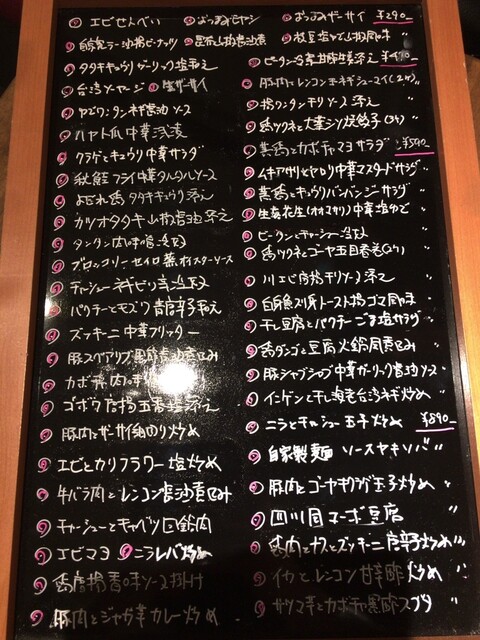 エビせんべい おつまみモヤシ おつまみザーサイ ¥290-
自家製ラー油揚ピーナッツ 昆布山椒醤油煮 枝豆塩ゆで山椒風味 〃
タタキキュウリガーリック塩和え
台湾ソーセージ 生ザーサイ
ゆでワンタンネギ醤油ソース
ハヤト瓜中華浅漬
クラゲとキュウリ中華サラダ
秋鮭フライ中華タルタルソース
よだれ鶏タタキキュウリ添え
カツオタタキ山椒醤油添え
タンタン肉味噌冷豆腐
ブロッコリーセイロ蒸オイスターソース
チャーシューネギピリ辛冷豆腐
パクチーとモズク青唐辛子和え
ズッキーニ中華フリッター
豚スペアリブ黒酢醤油煮込み
カボチャ肉
ゴボウ唐揚五香塩添え
豚肉とザーサイ細切り炒め
エビとカリフラワー塩炒め
牛バラ肉とレンコン醤油煮込み
チャーシューとキャベツ回鍋肉
エビマヨ ニラレバ炒め
鶏唐揚香味ソース掛け
豚肉とジャガ芋カレー炒め
ピータン 添え ¥490-
豚肉とレンコン玉ネギシューマイ(2ヶ) 〃
揚ワンタンチリソース添え 〃
鶏ツクネと大葉シソ焼餃子(3ヶ) 〃
蒸鶏とカボチャマヨサラダ ¥590-
ムキアサリとセロリ中華マスタードサラダ
蒸鶏とキュウリバンバンジーサラダ 〃
生落花生(オオマサリ)中華塩ゆで 〃
ピータンとチャーシュー冷豆腐 〃
鶏ツクネとゴーヤ五目春巻(2ヶ) 〃
川エビ唐揚チリソース添え 〃
白身魚スリ身トースト揚ゴマ風味 〃
干し豆腐とパクチーごま塩サラダ 〃
鶏ダンゴと豆腐火鍋風煮込み 〃
豚シャブシャブ中華ガーリック醤油ソース 〃
インゲンと干し海老台湾ネギ炒め 〃
ニラとチャーシュー玉子炒め ¥890-
自家製麺 ソースヤキソバ 〃
豚肉とゴーヤキクラゲ玉子炒め 〃
四川風マーボ豆腐 〃
鶏肉とナスとズッキーニ唐辛子炒め 〃
イカとレンコン甘辛酢炒め 〃
サツマ芋とカボチャ黒酢スブタ 〃